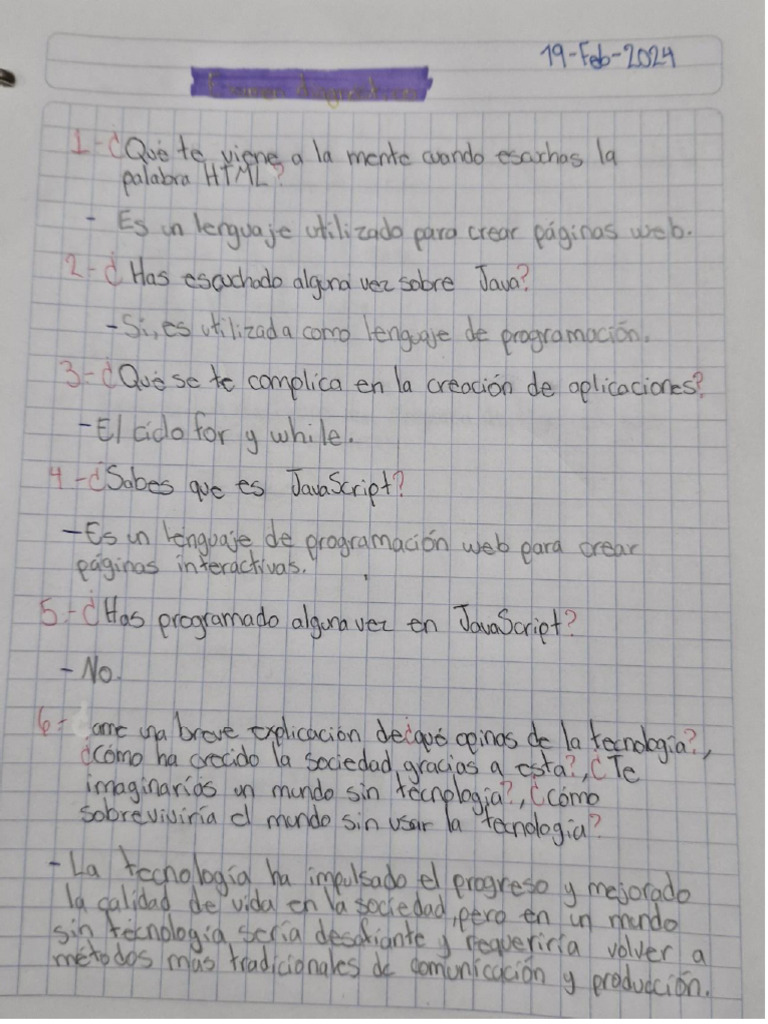 19-Feb-2024
Examen diagnostico
1-¿Qué te viene a la mente cuando escuchas la
palabra HTML?
- Es un lenguaje utilizado para crear páginas web.
2-¿Has escuchado alguna vez sobre Java?
-Si, es utilizada como lenguaje de programación.
3-¿Qué se te complica en la creación de aplicaciones?
-El ciclo for y while.
4-¿Sabes que es JavaScript?
-Es un lenguaje de programación web para crear
páginas interactivas.
5-¿Has programado alguna vez en JavaScript?
-No.
6- ame una breve explicación de¿qué opinas de la tecnología?,
¿cómo ha crecido la sociedad gracias a esta?,¿Te
imaginarías un mundo sin tecnología?,¿cómo
sobreviviría el mundo sin usar la tecnología?
-La tecnología ha impulsado el progreso y mejorado
la calidad de vida en la sociedad, pero en un mundo
sin tecnología sería desafiante y requeriría volver a
métodos mas tradicionales de comunicación y producción.